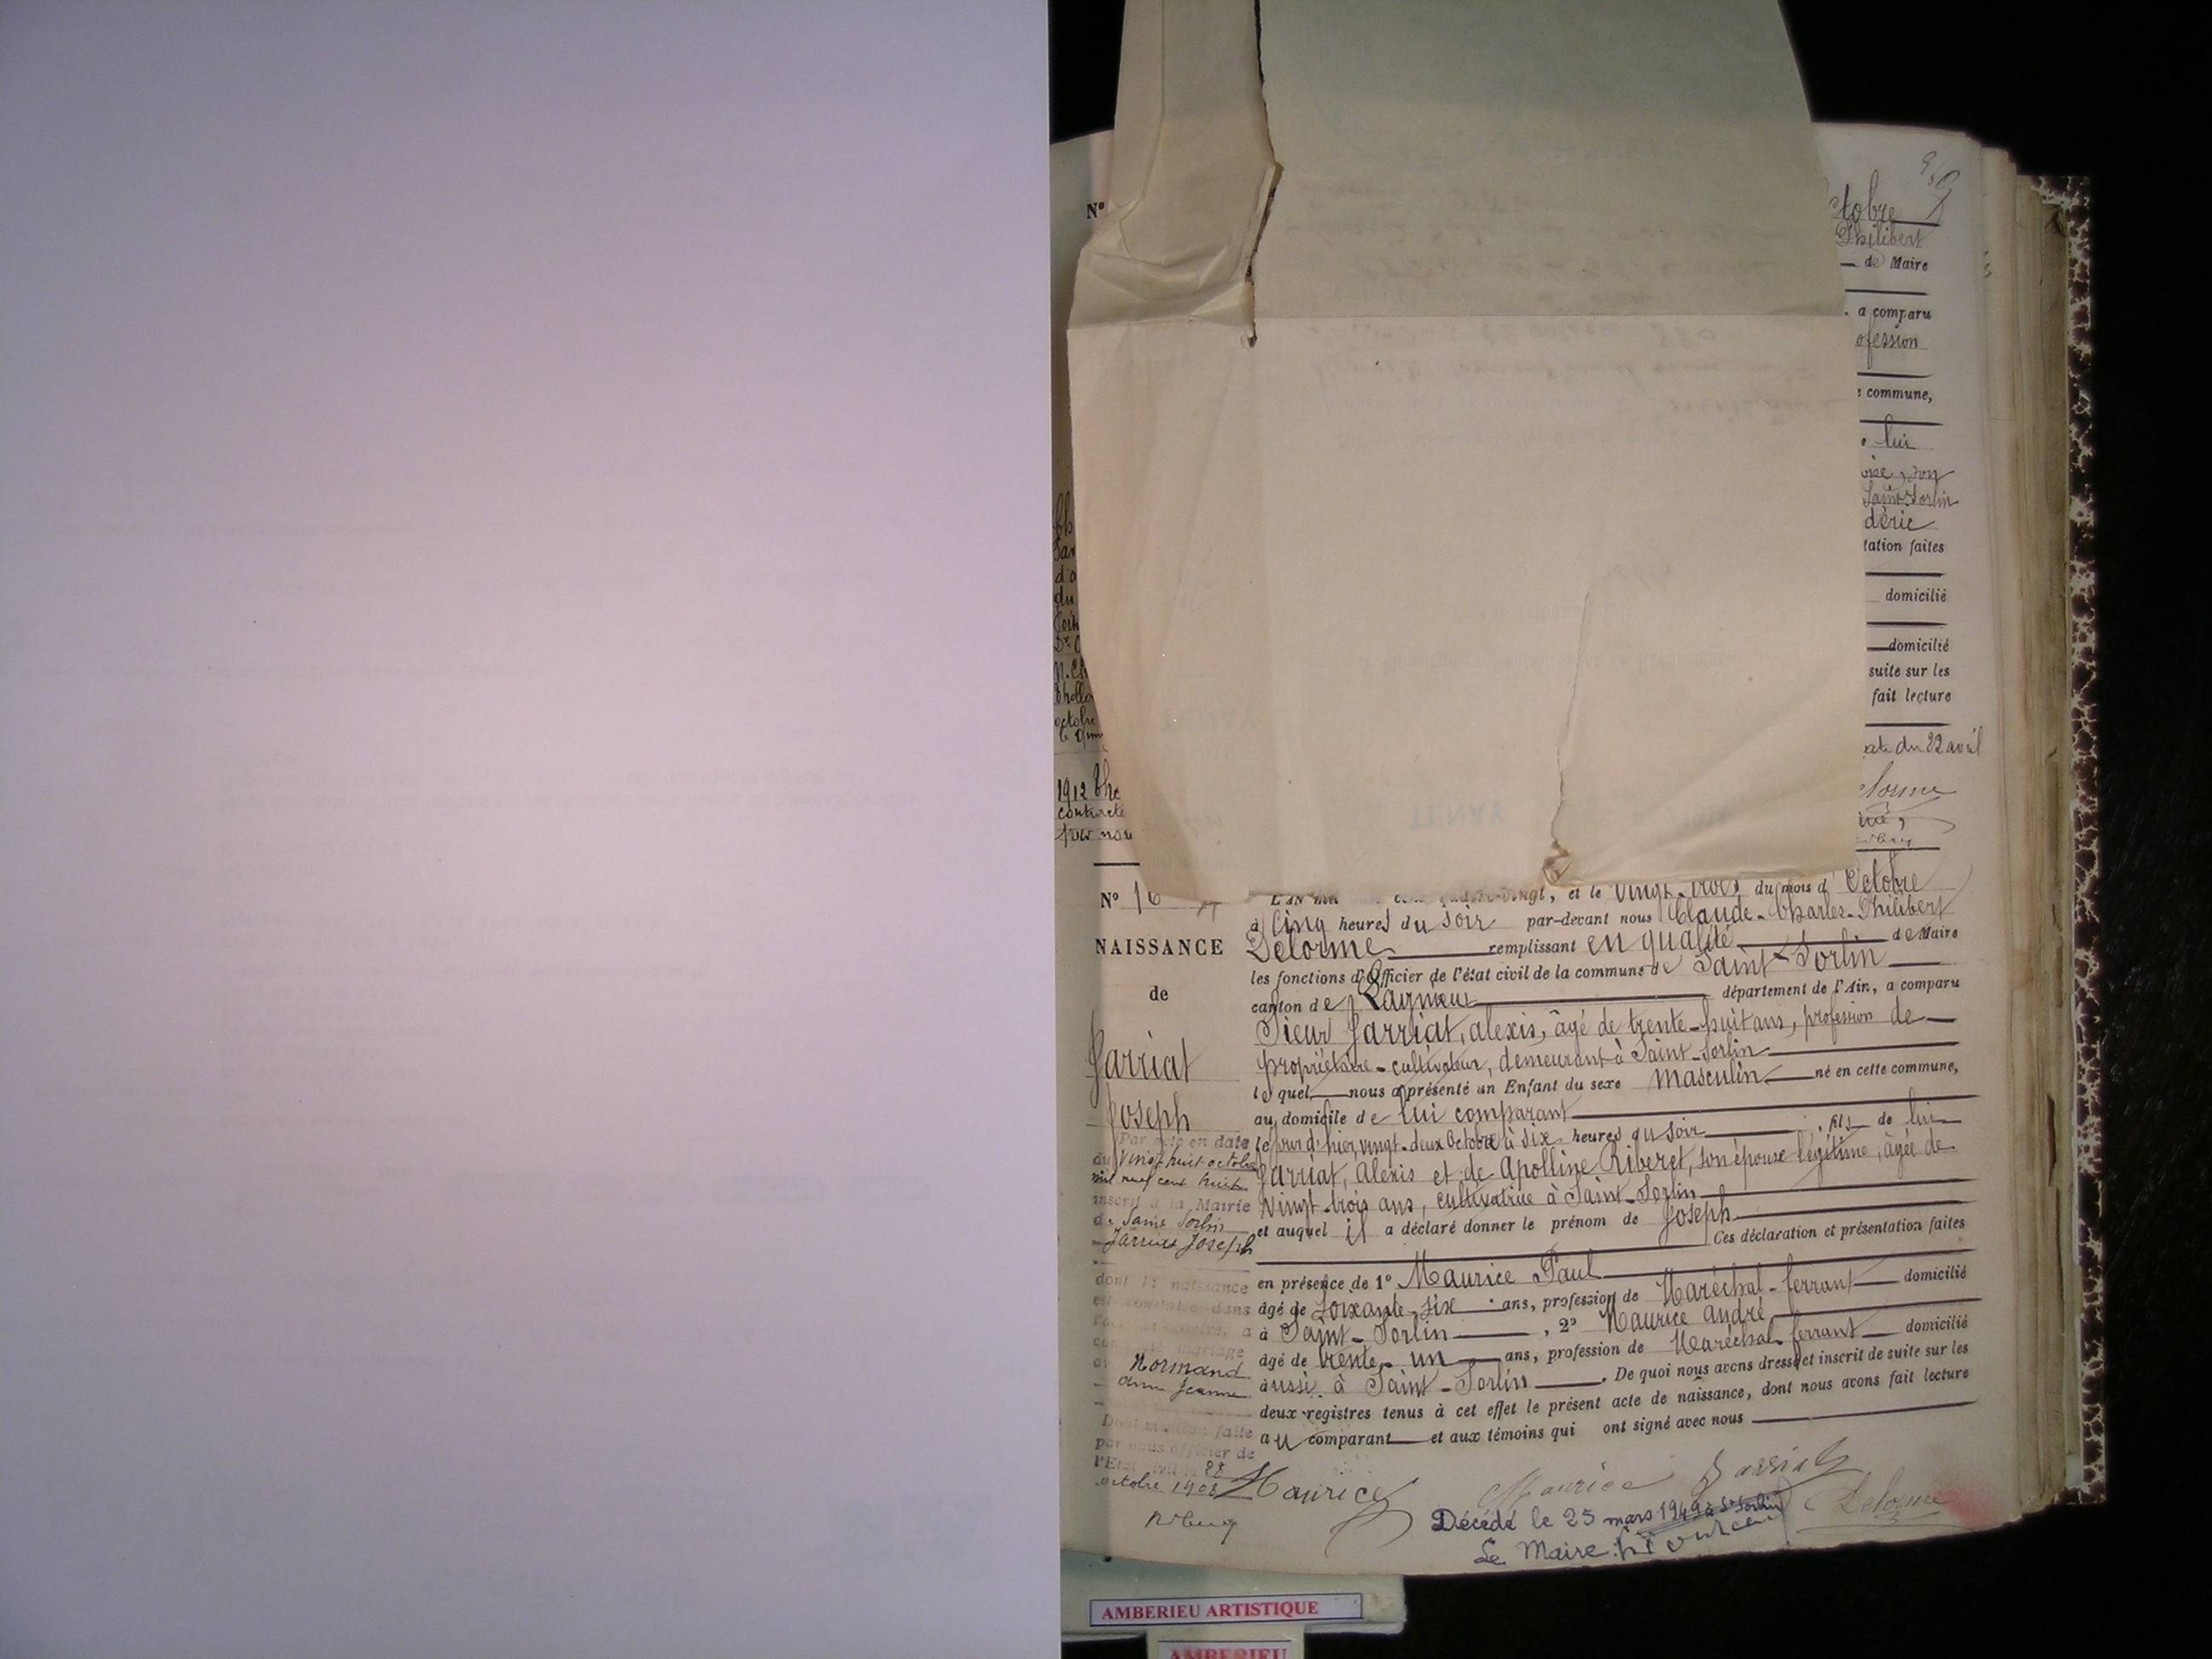 N°
ctobre
Philibert
de Maire
a comparu
ofession
commune,
lui
son
Saint-Sorlin
déric
tation faites
domicilié
domicilié
suite sur les
fait lecture
du 22 avril
lorme
d'a
du
octobre
1912
N° 16
NAISSANCE
de
Jarriat
Joseph
Par acte en date
du vingt huit octobre
mil neuf cent huit
inscrit à la Mairie
de Saint Sorlin
Jarriat Joseph
dont la naissance
est constatée dans
a
mariage
Normand
Jeanne
Dont mention faite
par nous officier de
l'Etat civil le 28
octobre 1908
vingt, et le vingt-trois du mois d'Octobre
à cinq heures du soir par-devant nous Claude-Charles-Philibert
Delorme remplissant en qualité de Maire
les fonctions d'Officier de l'état civil de la commune de Saint-Sorlin
canton de Lagnieu département de l'Ain, a comparu
Sieur Jarriat, alexis, âgé de trente-huit ans, profession de
propriétaire-cultivateur, demeurant à Saint-Sorlin
lequel nous a présenté un Enfant du sexe masculin né en cette commune,
au domicile de lui comparant
le jour d'hier, vingt-deux Octobre à six heures du soir, fils de lui
Jarriat, Alexis et de Apolline Riberet, son épouse légitime, âgée de
vingt-trois ans, cultivatrice à Saint-Sorlin
et auquel il a déclaré donner le prénom de Joseph
Ces déclaration et présentation faites
en présence de 1° Maurice Paul
âgé de soixante-six ans, profession de Maréchal-ferrant domicilié
à Saint-Sorlin, 2° Maurice André
âgé de trente-un ans, profession de Maréchal-ferrant domicilié
aussi à Saint-Sorlin. De quoi nous avons dressé et inscrit de suite sur les
deux registres tenus à cet effet le présent acte de naissance, dont nous avons fait lecture
au comparant et aux témoins qui ont signé avec nous
Maurice Maurice Jarriat
Delorme
Décédé le 25 mars 1949 à St Sorlin
Le Maire:
AMBERIEU ARTISTIQUE
AMBERIEU